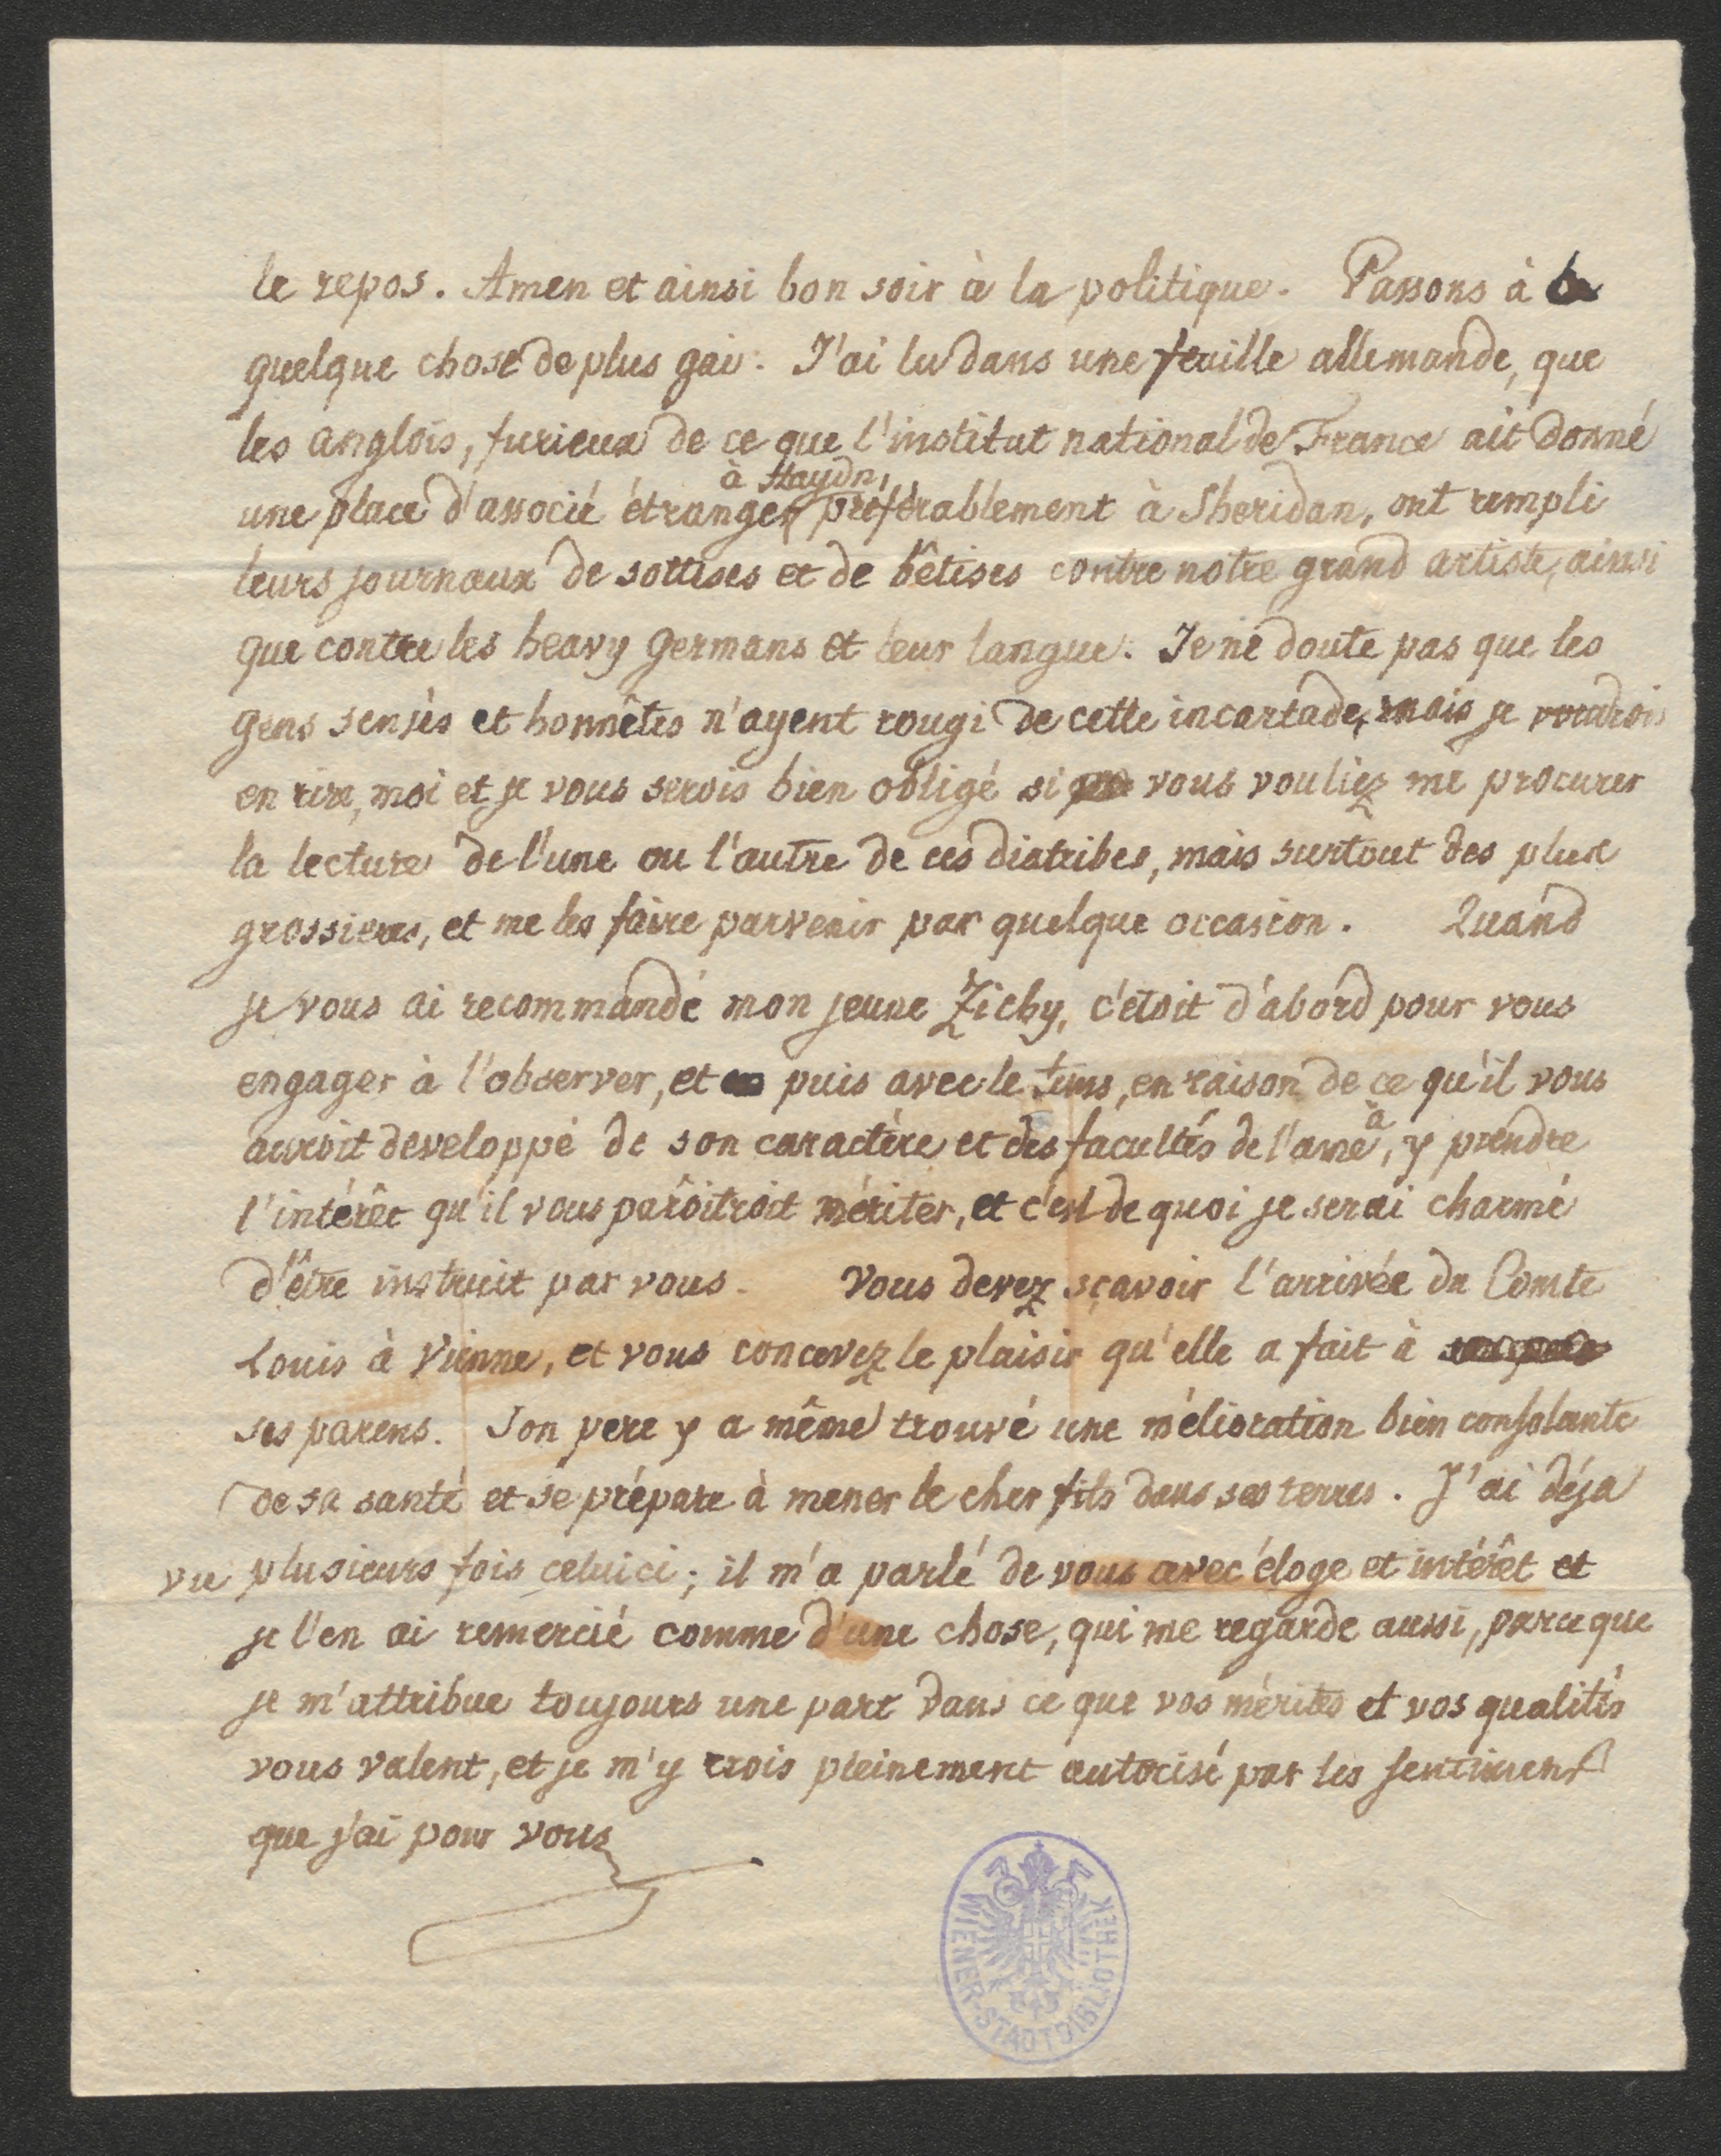 le repos. Amen et ainsi bon soir à la politique. Passons à
quelque chose de plus gai. J'ai lu dans une feuille allemande, que
les anglois, furieux de ce que l'institut national de France ait donné
à Haydn,
une place d'associé étranger préférablement à Sheridan, ont rempli
leurs journaux de sottises et de bêtises contre notre grand artiste, ainsi
que contre les heavy Germans et leur langue. Je ne doute pas que les
gens sensés et honnêtes n'ayent rougi de cette incartade, mais je voudrois
en rire, moi et je vous serois bien obligé si vous vouliez me procurer
la lecture de l'une ou l'autre de ces diatribes, mais surtout des plus
grossieres, et me les faire parvenir par quelque occasion. Quand
je vous ai recommandé mon jeune Zichy, c'étoit d'abord pour vous
engager à l'observer, et puis avec le tems, en raison de ce qu'il vous
auroit developpé de son caractère et des facultés de l'ame, à y prendre
l'intérêt qu'il vous parôitroit mériter, et c'est de quoi je serai charmé
d'être instruit par vous. Vous devez sçavoir l'arrivée du Comte
Louis à Vienne, et vous concevez le plaisir qu'elle a fait à
ses parens. Son pere y a même trouvé une mélioration bien consolante
de sa santé et se prépare à mener le cher fils dans ses terres. J'ai déja
vu plusieurs fois celuici; il m'a parlé de vous avec éloge et intérêt et
je l'en ai remercié comme d'une chose, qui me regarde aussi, parceque
je m'attribue toujours une part dans ce que vos mérites et vos qualités
vous valent, et je m'y crois pleinement autorisé par les sentimens
que j'ai pour vous
WIENER-STADTBIBLIOTHEK